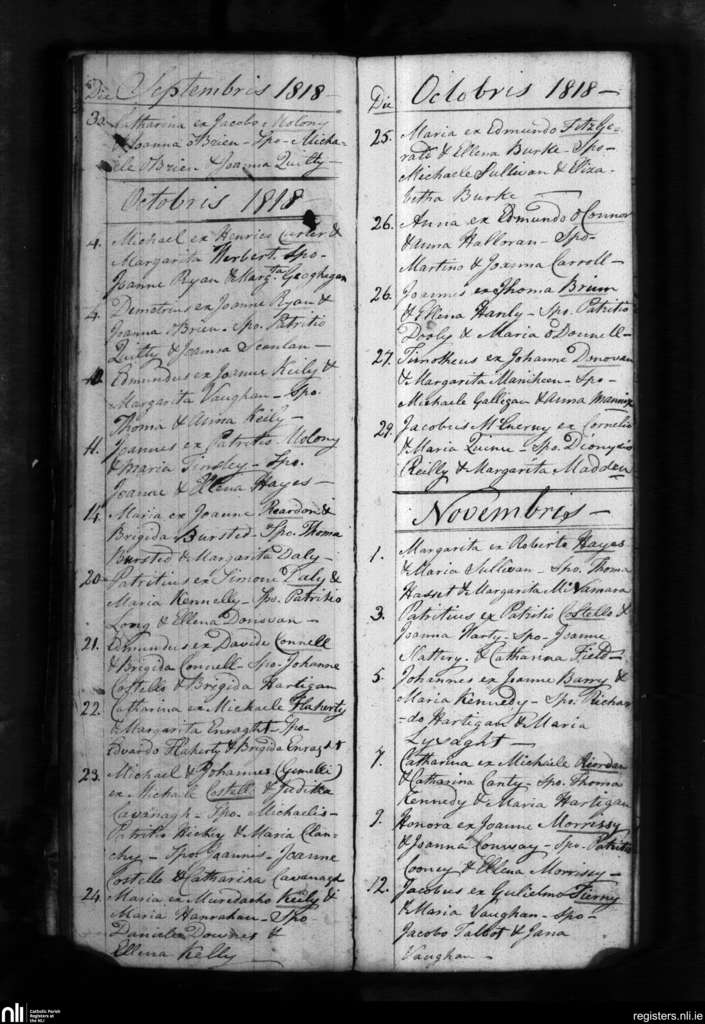 Die Septembris 1818 —
30. Catharina ex Jacobo Molony
& Joanna OBrien - Spo - Micha-
ele OBrien & Joanna Quilty —
Octobris 1818
4. Michael ex Henrico Carter &
Margarita Herbert. Spo -
Joanne Ryan & Margta Geoghegan
4. Demetrius ex Joanne Ryan &
Joanna OBrien - Spo. Patritio
Quilty & Joanna Scanlan —
10. Edmundus ex Joanne Keily &
Margarita Vaughan - Spo.
Thoma & Anna Keily —
11. Joannes ex Patritio Molony
& Maria Tinsley - Spo.
Joanne & Ellena Hayes —
14. Maria ex Joanne Reardon &
Brigida Bursted - Spo. Thoma
Bursted & Margarita Daly —
20 - Patritius ex Simone Daly &
Maria Kennelly - Spo. Patritio
Long & Ellena Donovan —
21. Edmundus ex Davide Connell
& Brigida Connell - Spo. Johanne
Costello & Brigida Hartigan
22. Catharina ex Michaele Flaherty
& Margarita Enraght - Spo -
Edvardo Flaherty & Brigida Enraght
23. Michael & Johannes (Gemelli)
ex Michaele Costell &
Cavanagh - Spo. Michaelis -
Patritio Hickey & Maria Clan-
chy - Spo. Joannis - Joanne
Costello & Catharina Cavanagh
24. Maria ex Muredacho Keily &
Maria Hanrahan - Spo
Daniele Downes &
Ellena Kelly —
Die Octobris 1818 —
25. Maria ex Edmundo FitzGe-
rald & Ellena Burke - Spo -
Michaele Sullivan & Eliza-
betha Burke —
26. Anna ex Edmundo OConnor
& Anna Halloran - Spo -
Martino & Joanna Carroll —
26. Joannes ex Thoma Brien
& Ellena Hanly - Spo. Patritio
Dooly & Maria ODonnell —
27. Timotheus ex Johanne Donovan
& Margarita Maniheen - Spo -
Michaele Galligan & Anna Mannix
29. Jacobus McEnerny ex Cornelio
& Maria Quinn - Spo. Dionysio
Reilly & Margarita Madden
Novembris —
1. Margarita ex Roberto Hayes
& Maria Sullivan - Spo. Thoma
Hasset & Margarita McNamara
3. Patritius ex Patritio Costello &
Joanna Harty - Spo - Joanne
Slattery. & Catharina Field —
5. Johannes ex Joanne Barry &
Maria Kennedy - Spo. Richar-
-do Hartigan & Maria
Lysaght —
7. Catharina ex Michaele Riordan
& Catharina Canty - Spo. Thoma
Kennedy & Maria Hartigan
9. Honora ex Joanne Morrissy
& Joanna Conway - Spo. Patritio
Cooney & Ellena Morrissy —
12. Jacobus ex Gulielmo Tierny
& Maria Vaughan - Spo -
Jacobo Talbot & Jana
Vaughan —
nli Catholic Parish
Registers at
the NLI
registers.nli.ie